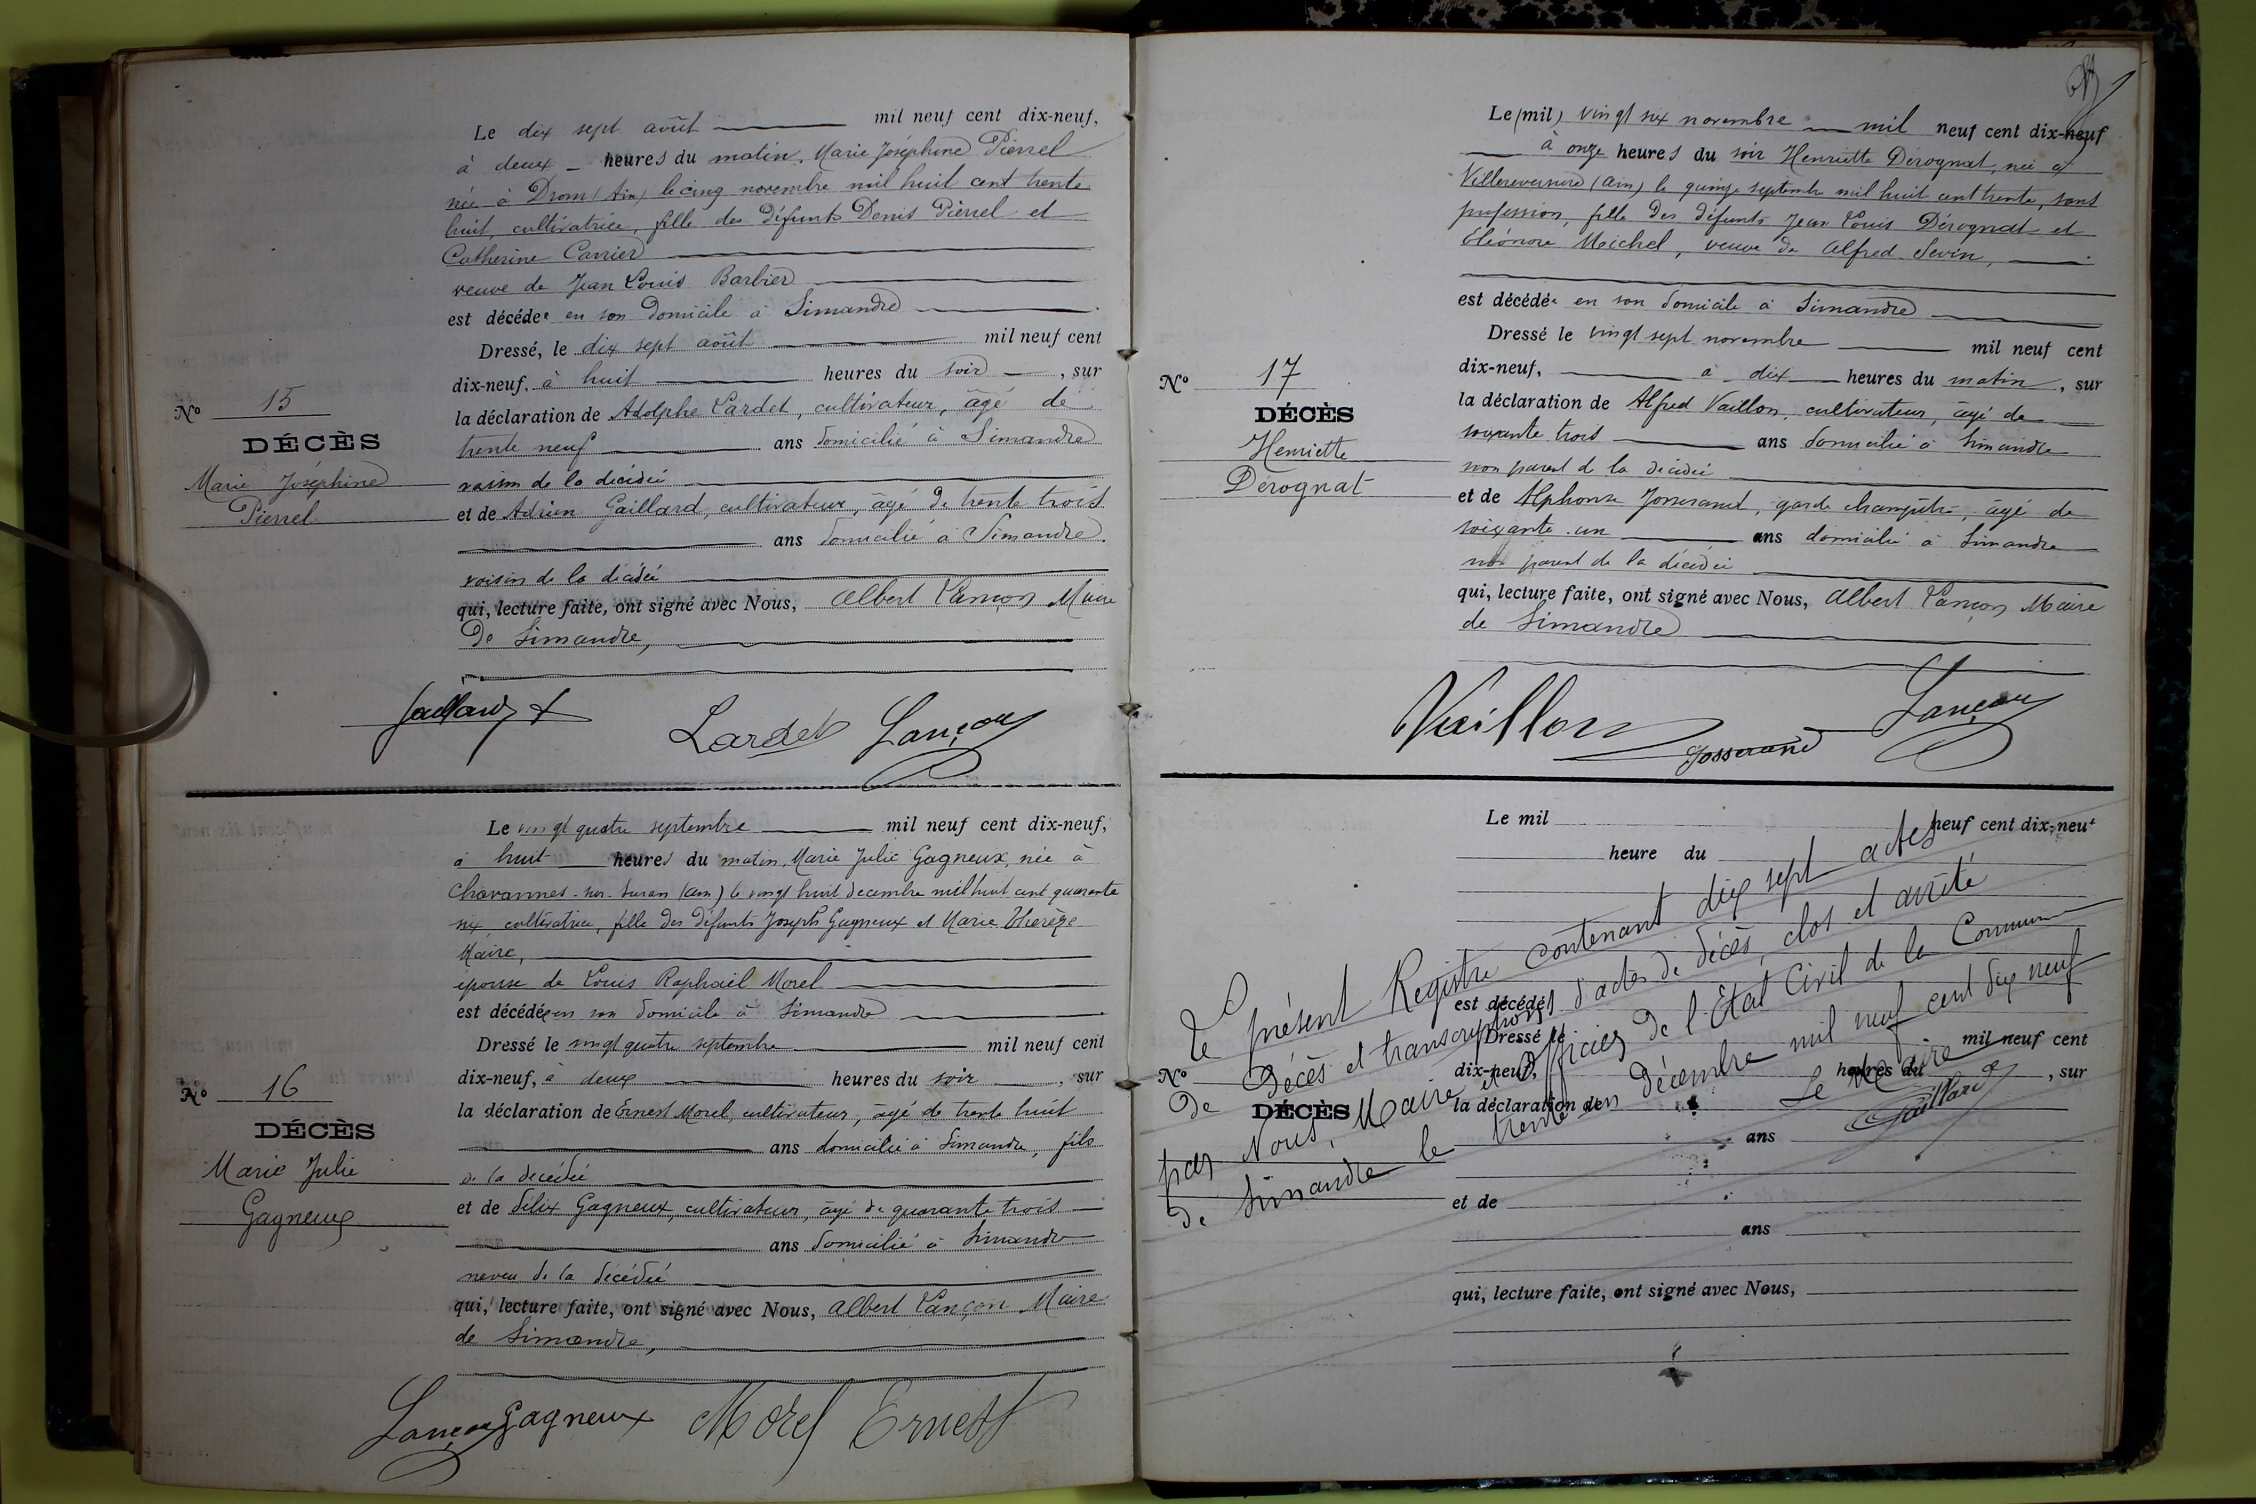 Le dix sept août mil neuf cent dix-neuf,
à deux heures du matin, Marie Joséphine Pierrel
née à Drom (Ain) le cinq novembre mil huit cent trente
huit, cultivatrice, fille des défunts Denis Pierrel et
Catherine Carrier
veuve de Jean Louis Barbier
est décédée en son domicile à Simandre
Dressé, le dix sept août mil neuf cent
dix-neuf, à huit heures du soir, sur
la déclaration de Adolphe Lardet, cultivateur, âgé de
trente neuf ans domicilié à Simandre
voisin de la décédée
et de Adrien Gaillard, cultivateur, âgé de trente trois
ans domicilié à Simandre.
voisin de la décédée
qui, lecture faite, ont signé avec Nous, Albert Lançon Maire
de Simandre,
No 15
DÉCÈS
Marie Joséphine
Pierrel
Gaillard
Lardet
Lançon
Le vingt quatre septembre mil neuf cent dix-neuf,
à huit heures du matin, Marie Julie Gagneux, née à
Chavannes-sur-Suran (Ain) le vingt huit décembre mil huit cent quarante
six, cultivatrice, fille des défunts Joseph Gagneux et Marie Therèze
Maire,
épouse de Louis Raphaël Morel
est décédée en son domicile à Simandre
Dressé le vingt quatre septembre mil neuf cent
dix-neuf, à deux heures du soir, sur
la déclaration de Ernest Morel, cultivateur, âgé de trente huit
ans domicilié à Simandre, fils
de la décédée
et de Félix Gagneux, cultivateur, âgé de quarante trois
ans domicilié à Simandre
neveu de la décédée
qui, lecture faite, ont signé avec Nous, Albert Lançon Maire
de Simandre,
No 16
DÉCÈS
Marie Julie
Gagneux
Lançon Gagneux Morel Ernest
Le (mil) vingt six novembre mil neuf cent dix-neuf
à onze heures du soir Henriette Dérognat, née à
Villereversure (Ain) le quinze septembre mil huit cent trente, sans
profession, fille des défunts Jean Louis Dérognat et
Eléonore Michel, veuve de Alfred Sevin,
est décédée en son domicile à Simandre
Dressé le vingt sept novembre mil neuf cent
dix-neuf, à dix heures du matin, sur
la déclaration de Alfred Vaillon, cultivateur, âgé de
soixante trois ans domicilié à Simandre
non parent de la décédée
et de Alphonse Josserand, garde champêtre, âgé de
soixante un ans domicilié à Simandre
non parent de la décédée
qui, lecture faite, ont signé avec Nous, Albert Lançon Maire
de Simandre
No 17
DÉCÈS
Henriette
Dérognat
Vaillon
Josserand
Lançon
Le mil neuf cent dix-neuf
heure du
est décédé
Dressé le mil neuf cent
dix-neuf, heures du , sur
la déclaration de
ans
et de
ans
qui, lecture faite, ont signé avec Nous,
No
DÉCÈS
Le présent Registre contenant dix sept actes
de Décès et transcriptions d'actes de décès, clos et arrêté
par Nous, Maire et Officier de l'Etat Civil de la Commune
de Simandre le trente un décembre mil neuf cent dix neuf
Le Maire
Gaillard